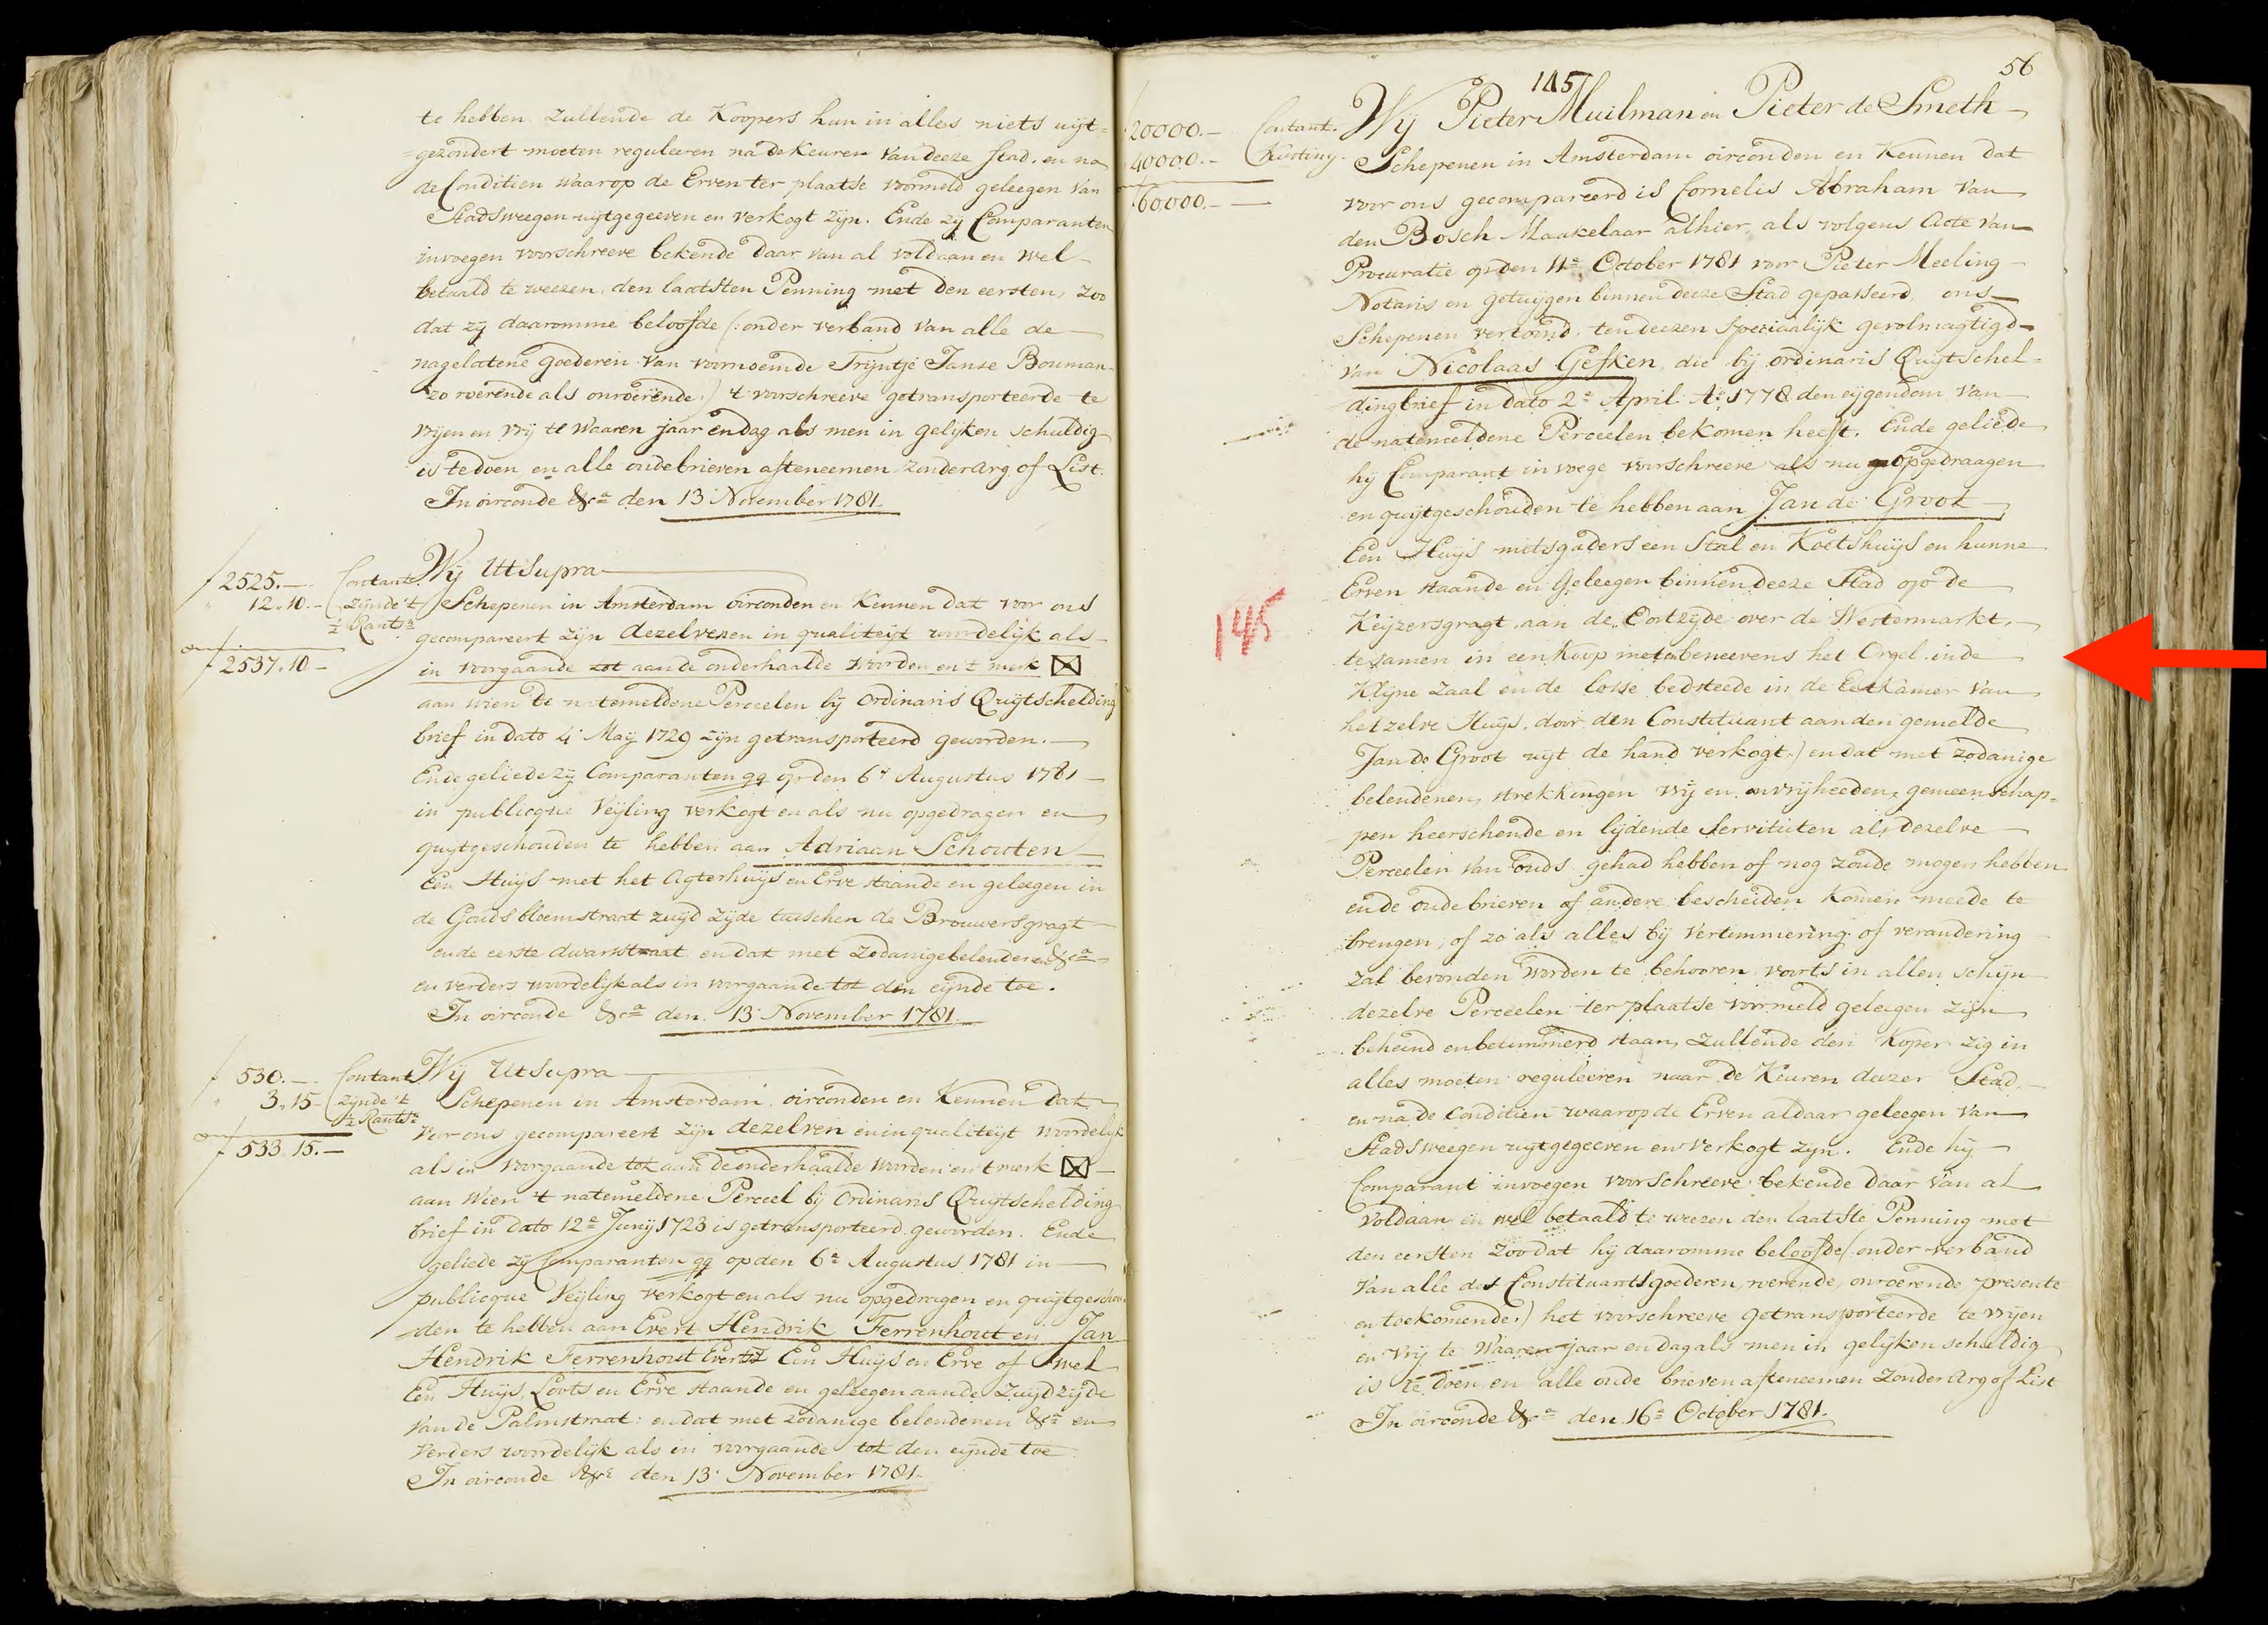 te hebben. Zullende de Koopers hun in alles niets uijt=
=gezondert moeten reguleeren na de Keuren van deeze Stad. en na
de Conditien waarop de Erven ter plaatse voormeld geleegen van
Stadsweegen uijtgegeeven en verkogt zijn. Ende zij Comparanten
invoegen voorschreeve bekende daar van al voldaan en wel
betaald te weezen. den laatsten Penning met den eersten, zoo
dat zij daaromme beloofde (: onder verband van alle de
nagelatene goederen van voornoemde Trijntje Janse Bouman
zo roerende als onroerende:) 't voorschreeve getransporteerde te
vrijen en vrij te waaren jaar en dag als men in gelijken schuldig
is te doen en alle oude brieven afteneemen zonder arg of List.
In oirconde &ca den 13 November 1781.
f 2525.— Contant
" 12.10.— zijnde 't
½ Rants
f 2537.10—
Wij Ut Supra
Schepenen in Amsterdam oirconden en Kennen dat voor ons
gecompareert zijn dezelve en in qualiteijt woordelijk als
in voorgaande tot aan de onderhaalde woorden en 't merk ☒
aan wien de natemeldene Perceelen bij ordinaris Quijtschelding
brief in dato 4 Maij 1729 zijn getransporteerd geworden.
Ende geliede zij Comparanten qq op den 6e Augustus 1781
in publicque Veijling verkogt en als nu opgedragen en
quijtgeschouden te hebben aan Adriaan Schouten
Een Huijs met het Agterhuijs en Erve staande en geleegen in
de Goudsbloemstraat zuijd zijde tusschen de Brouwersgragt
en de eerste dwarsstraat en dat met zodanige belendenen &ca
en verders woordelijk als in voorgaande tot den eijnde toe.
In oirconde &ca den 13 November 1781.
f 530.— Contant
" 3.15— zijnde 't
½ Rants
f 533 15.—
Wij Ut Supra
Schepenen in Amsterdam oirconden en Kennen dat
voor ons gecompareert zijn dezelven en in qualiteijt woordelijk
als in voorgaande tot aan de onderhaalde woorden en 't merk ☒
aan wien 't natemeldene Perceel bij ordinaris Quijtschelding
brief in dato 12e Junij 1723 is getransporteerd geworden. Ende
geliede zij Comparanten qq op den 6e Augustus 1781 in
publicque Veijling verkogt en als nu opgedragen en quijtgeschou
den te hebben aan Evert Hendrik Ferrenhout en Jan
Hendrik Ferrenhout Evertsz Een Huijs en Erve of wel
Een Huijs, Loots en Erve staande en geleegen aan de Zuijdzijde
van de Palmstraat: en dat met zodanige belendenen &ca en
verders woordelijk als in voorgaande tot den eijnde toe
In oirconde &ca den 13 November 1781.
56
145
f 20000.— Contant.
40000.— Kusting.
60000.—
Wij Pieter Muilman en Pieter de Smeth
Schepenen in Amsterdam oirconden en Kennen dat
voor ons gecompareerd is Cornelis Abraham van
den Bosch Maakelaar alhier, als volgens Acte van
Procuratie op den 11e October 1781 voor Pieter Meeling
Notaris en getuijgen binnen deeze Stad gepasseerd, ons
Schepenen vertoond, ten deezen speciaalijk gevolmagtigd
van Nicolaas Gefken, die bij ordinaris Quijtschel=
dingbrief in dato 2e April Ao 1778 den eijgendom van
de natemeldene Perceelen bekomen heeft. Ende geliede
hij Comparant in voege voorschreeve als nu opgedraagen
en quijtgeschouden te hebben aan Jan de Groot
Een Huijs mitsgaders een Stal en Koetshuijs en hunne
Erven staande en geleegen binnen deeze Stad op de
Keijzersgragt, aan de Oostzijde over de Westermarkt,
145
te samen in een Koop met beneevens het Orgel in de
Klijne Zaal en de losse bedsteede in de Eetkamer van
hetzelve Huijs, door den Constituant aan den gemelde
Jan de Groot uijt de hand verkogt:) en dat met zodanige
belendenen, strekkingen vrij en onvrijheeden, gemeenschap=
pen heerschende en lijdende Servituten als dezelve
Perceelen van ouds gehad hebben of nog zoude mogen hebben
en de oude brieven of andere bescheiden komen meede te
brengen, of zo als alles bij vertimmering of verandering
zal bevonden worden te behooren, voorts in allen schijn
dezelve Perceelen ter plaatse voormeld geleegen zijn
beheind en betimmerd staan, zullende den Koper zig in
alles moeten reguleeren naar de Keuren deezer Stad
en na de Conditien waarop de Erven aldaar geleegen van
Stadsweegen uijtgegeeven en verkogt zijn. Ende hij
Comparant invoegen voorschreeve bekende daar van al
voldaan en wel betaald te weezen den laatste Penning met
den eersten zoo dat hij daaromme beloofde (: onder verband
van alle des Constituants goederen, roerende, onroerende presente
en toekomende:) het voorschreeve getransporteerde te vrijen
en vrij te Waaren jaar en dag als men in gelijken schuldig
is te doen en alle oude brieven afteneemen zonder arg of List
In oirconde &ca den 16e October 1781.